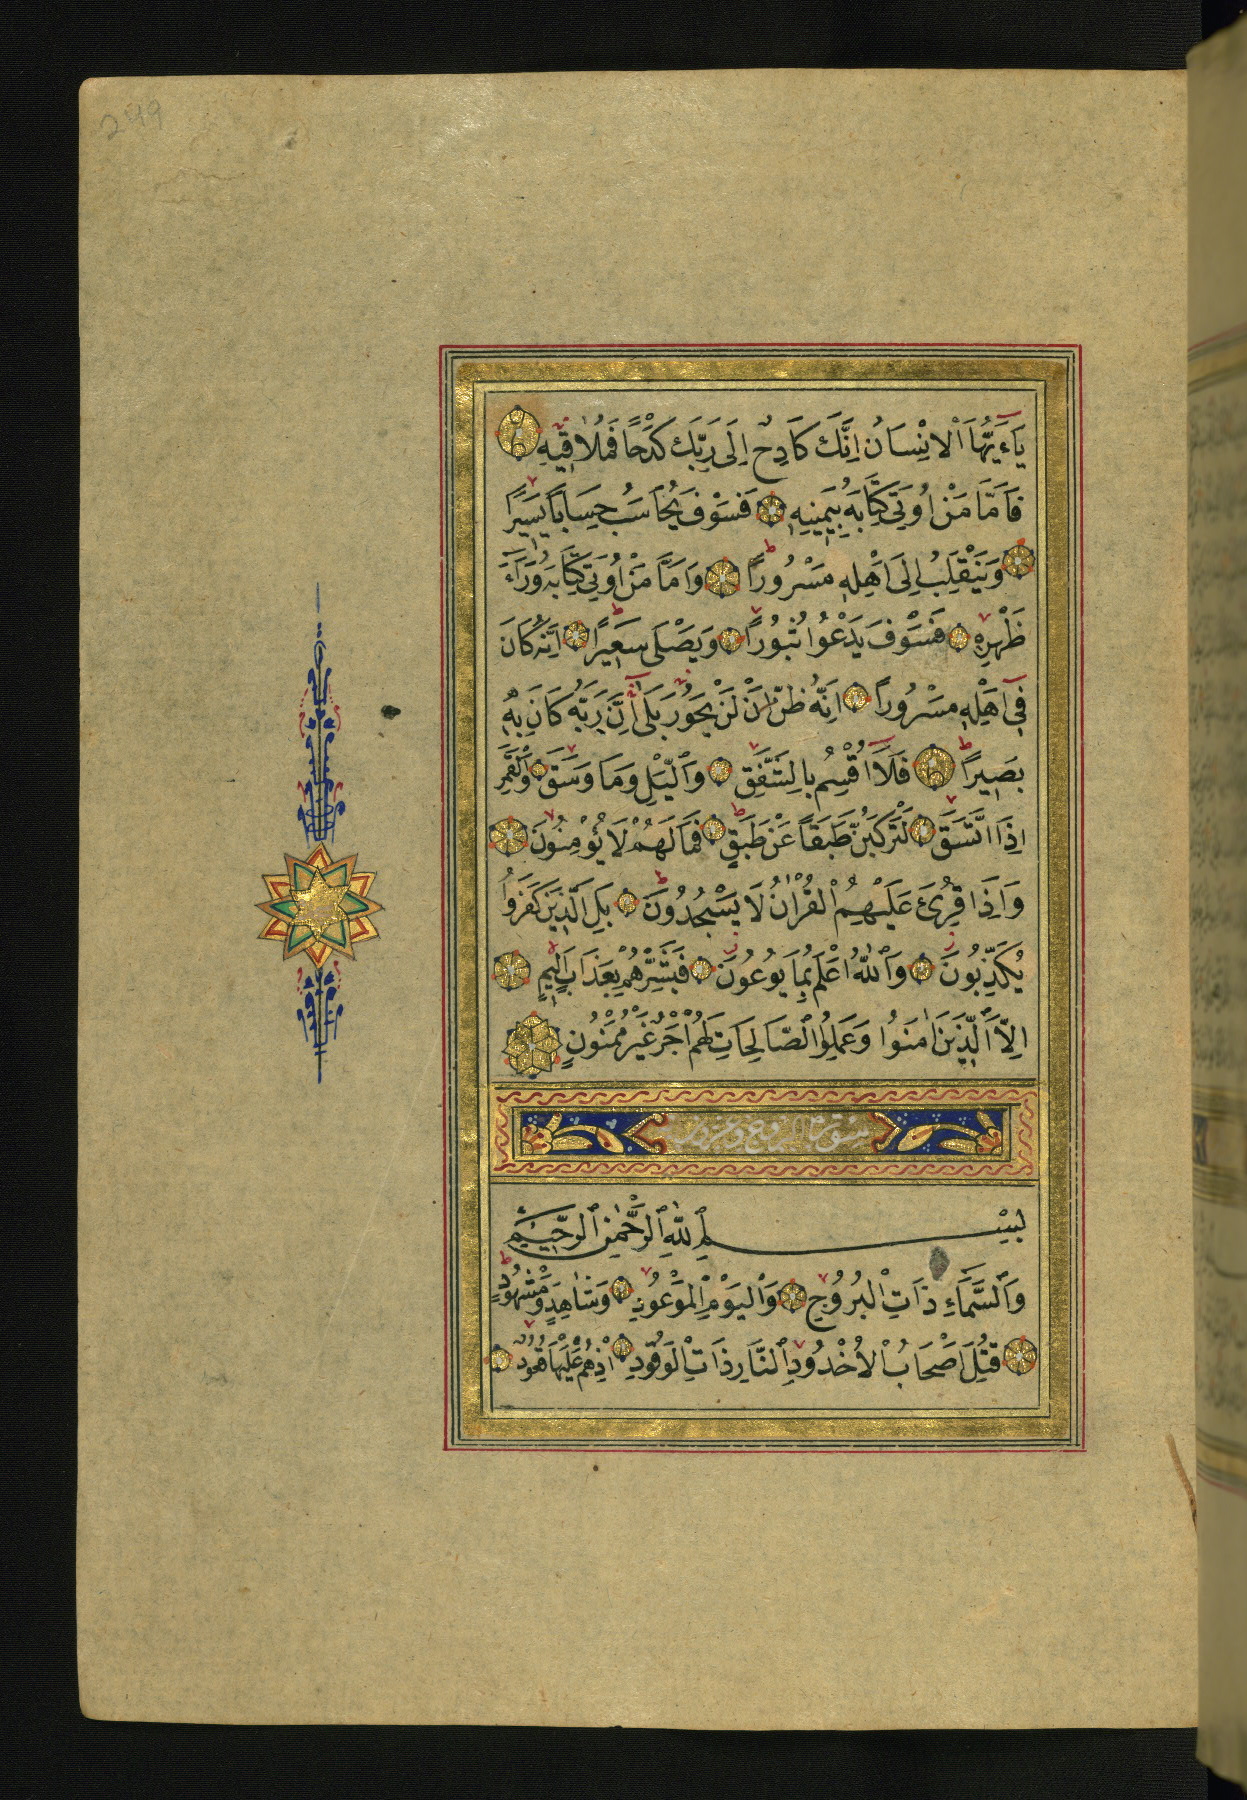 249
يَٓاءَيُّهَا الْاِنْسَانُ اِنَّكَ كَادِحٌ اِلَى رَبِّكَ كَدْحًا فَمُلَاقِيهِ
فَاَمَّا مَنْ اُوتِيَ كِتَابَهُ بِيَمِينِهِ فَسَوْفَ يُحَاسَبُ حِسَابًا يَسِيرًا
وَيَنْقَلِبُ اِلَى اَهْلِهِ مَسْرُورًا وَاَمَّا مَنْ اُوتِيَ كِتَابَهُ وَرَاءَ
ظَهْرِهِ فَسَوْفَ يَدْعُوا ثُبُورًا وَيَصْلَى سَعِيرًا اِنَّهُ كَانَ
فِي اَهْلِهِ مَسْرُورًا اِنَّهُ ظَنَّ اَنْ لَنْ يَحُورَ بَلَى اِنَّ رَبَّهُ كَانَ بِهِ
بَصِيرًا فَلَا اُقْسِمُ بِالشَّفَقِ وَالَّيْلِ وَمَا وَسَقَ وَالْقَمَرِ
اِذَا اتَّسَقَ لَتَرْكَبُنَّ طَبَقًا عَنْ طَبَقٍ فَمَا لَهُمْ لَا يُؤْمِنُونَ
وَاِذَا قُرِئَ عَلَيْهِمُ الْقُرْاٰنُ لَا يَسْجُدُونَ بَلِ الَّذِينَ كَفَرُوا
يُكَذِّبُونَ وَاللّٰهُ اَعْلَمُ بِمَا يُوعُونَ فَبَشِّرْهُمْ بِعَذَابٍ اَلِيمٍ
اِلَّا الَّذِينَ اٰمَنُوا وَعَمِلُوا الصَّالِحَاتِ لَهُمْ اَجْرٌ غَيْرُ مَمْنُونٍ
سورة البروج
بِسْمِ اللّٰهِ الرَّحْمٰنِ الرَّحِيمِ
وَالسَّمَاءِ ذَاتِ الْبُرُوجِ وَالْيَوْمِ الْمَوْعُودِ وَشَاهِدٍ وَمَشْهُودٍ
قُتِلَ اَصْحَابُ الْاُخْدُودِ النَّارِ ذَاتِ الْوَقُودِ اِذْ هُمْ عَلَيْهَا قُعُودٌ